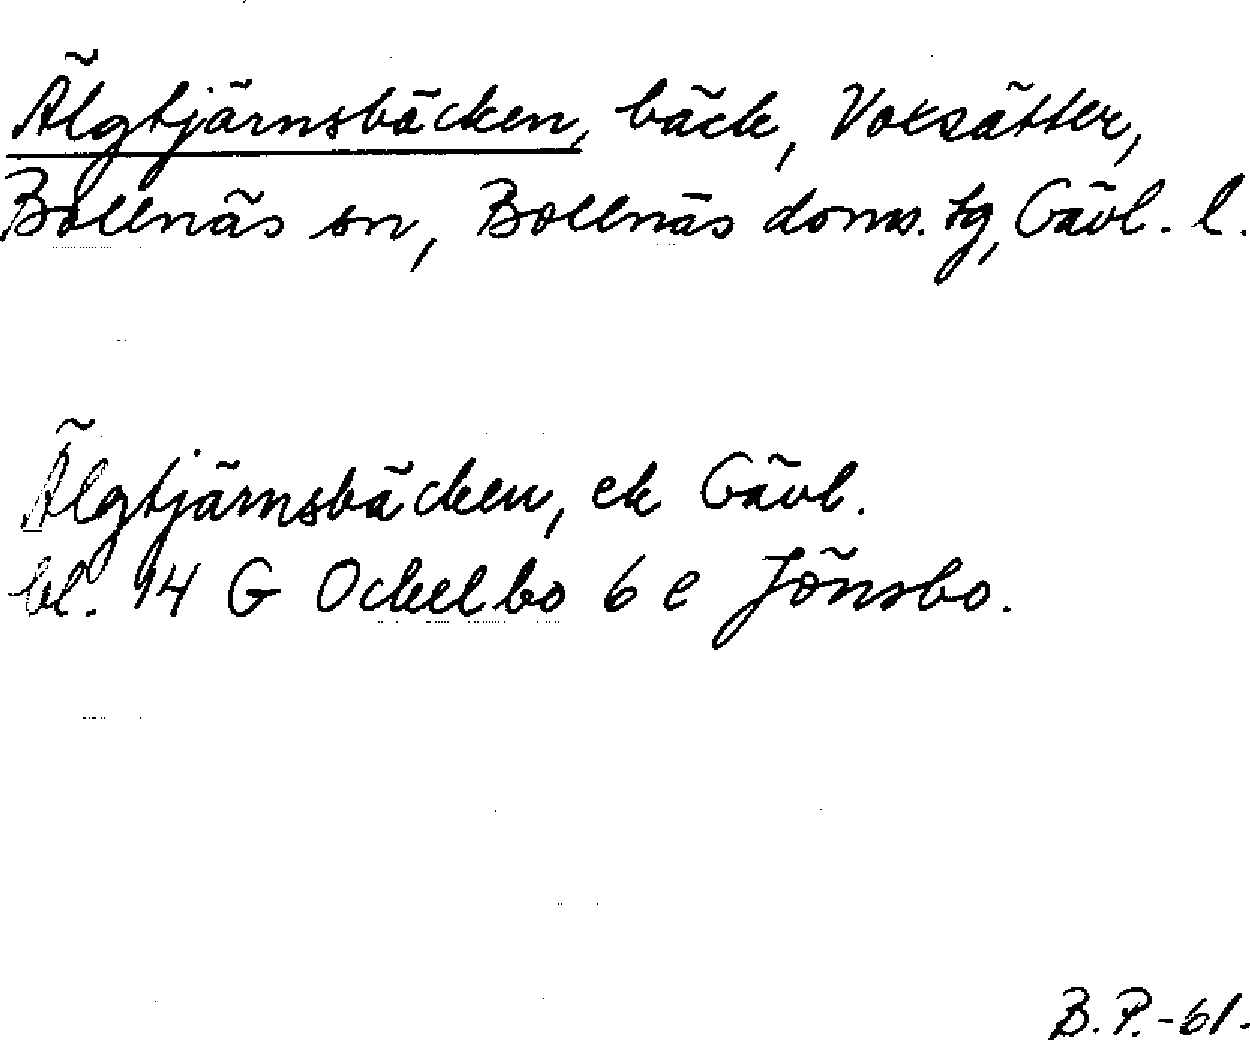 Älgtjärnsbäcken, bäck, Voxsätter,
Bollnäs sn, Bollnäs doms. tg, Gävl. l.
Älgtjärnsbäcken, ek Gävl.
bl. 14 G Ockelbo 6 e Jönsbo.
B.P.-61.